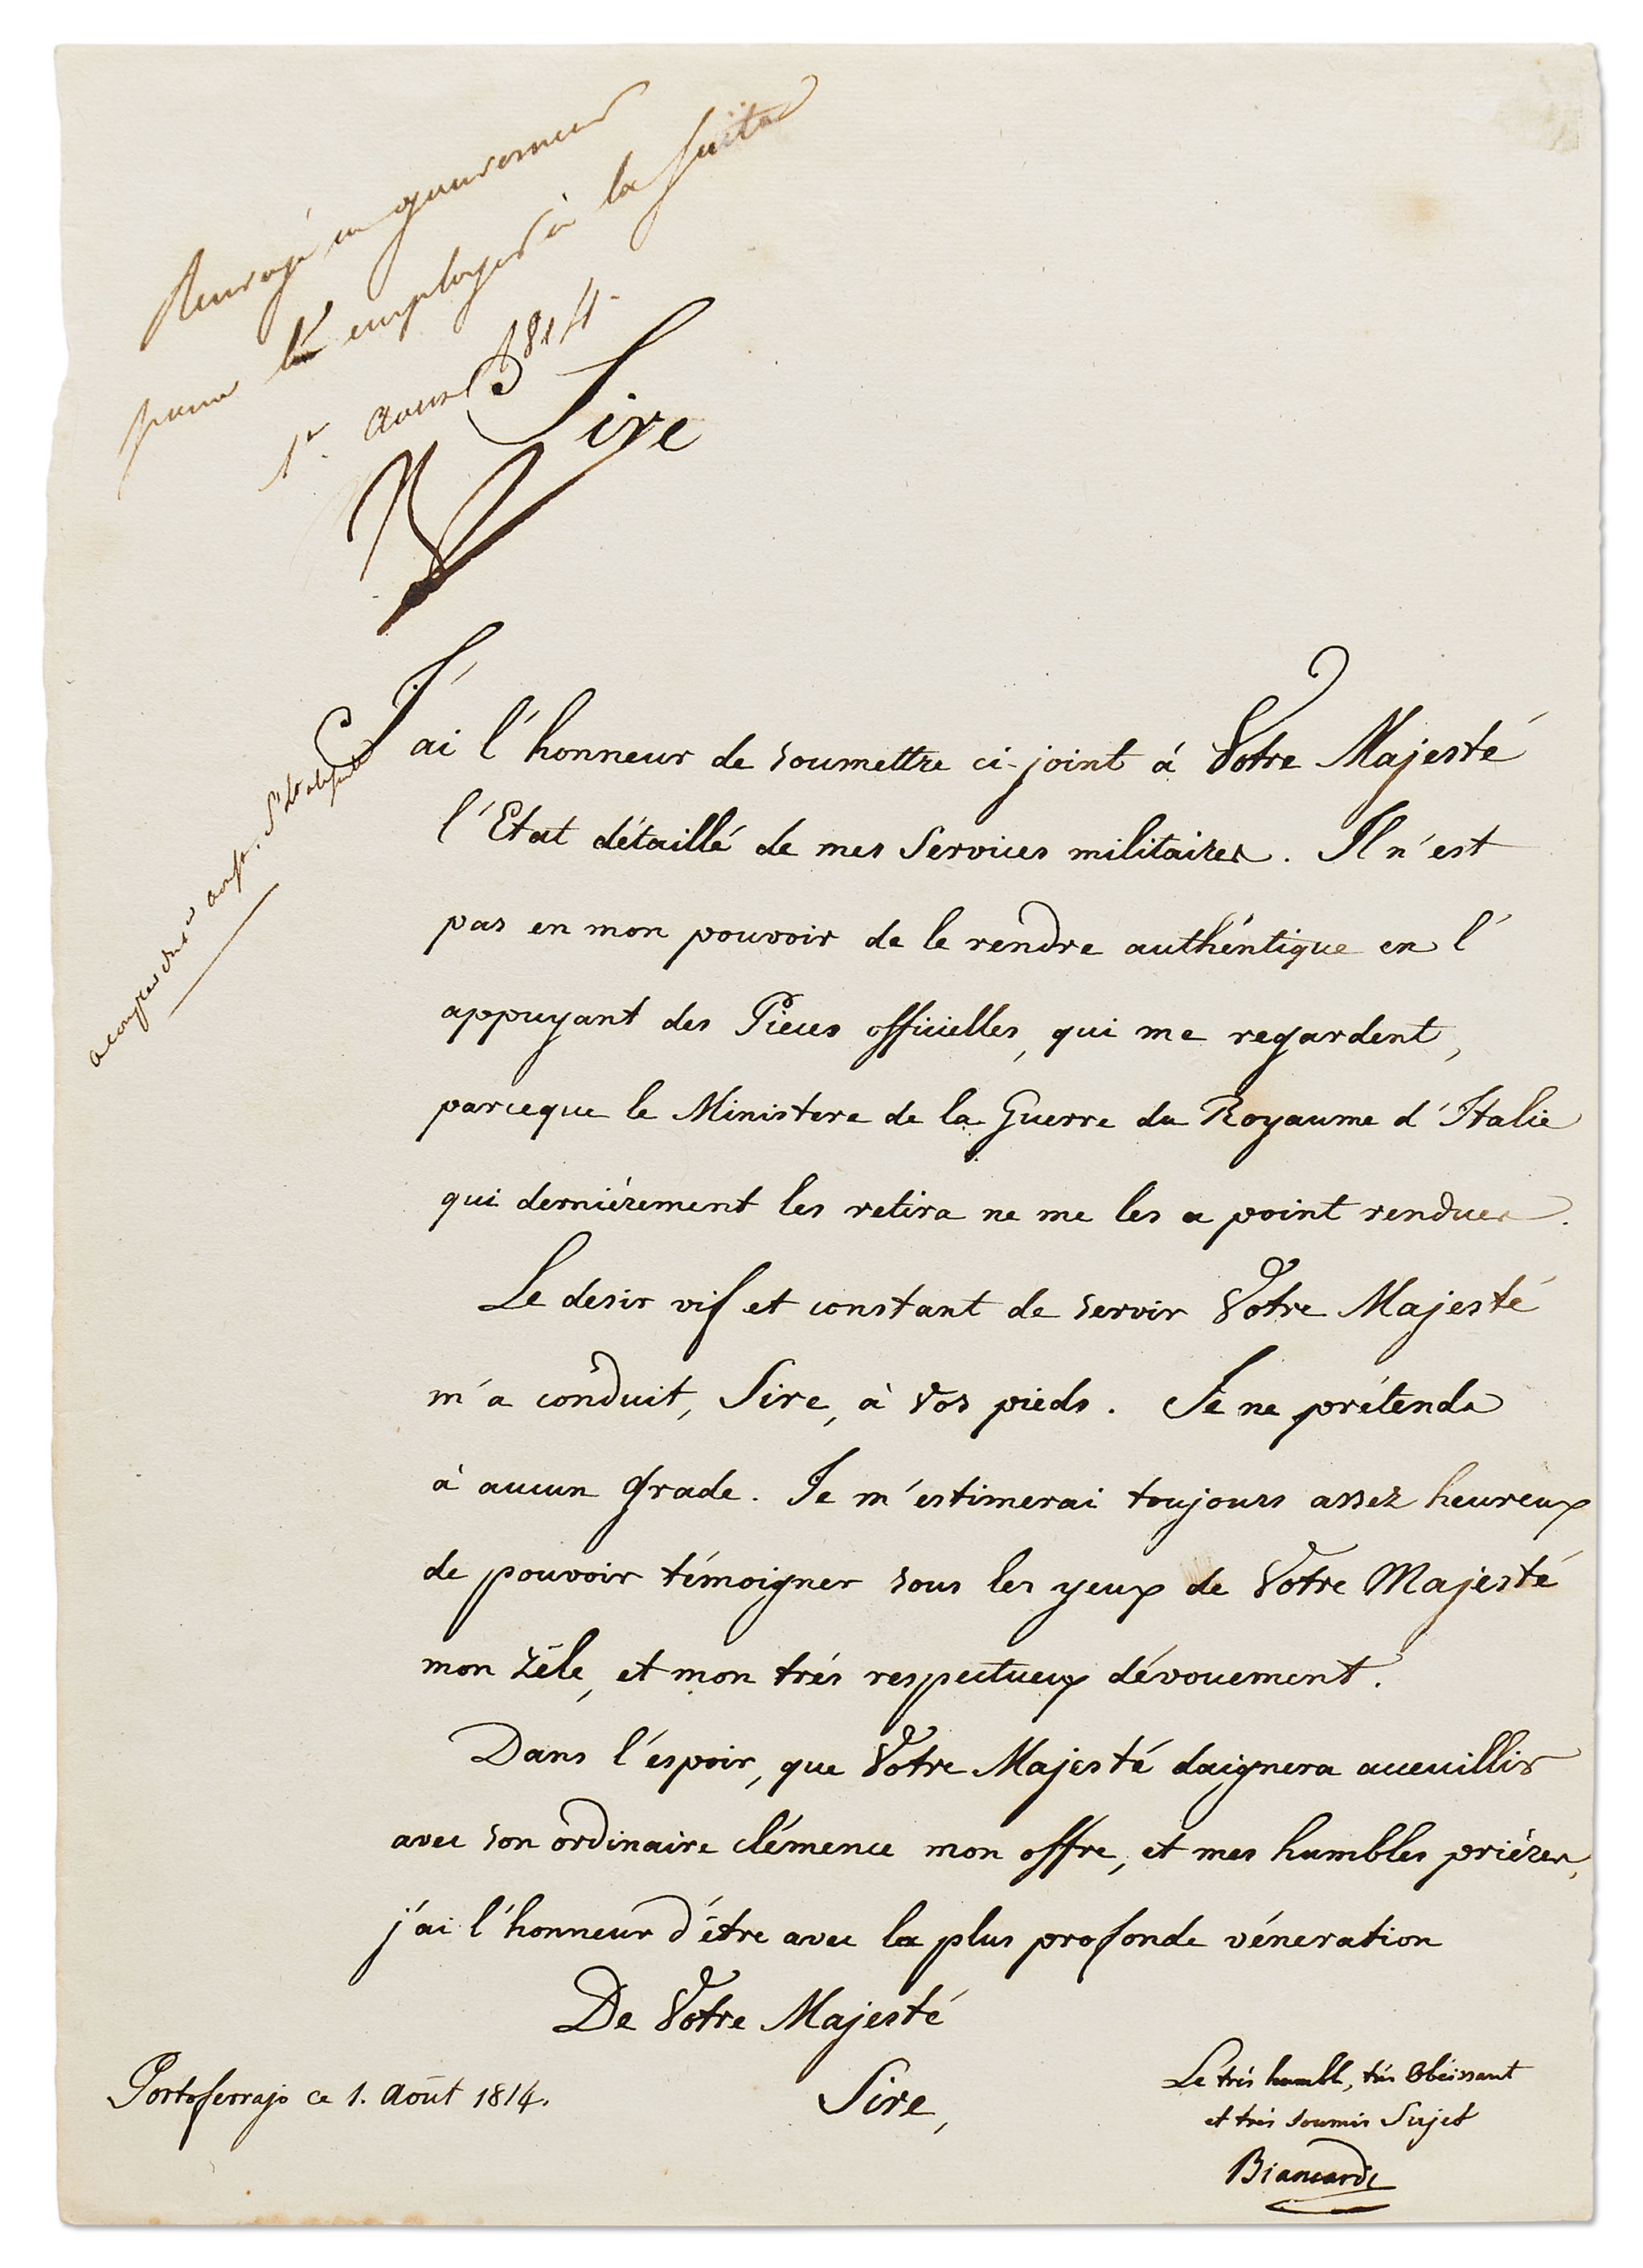 Renvoyé au gouverneur
pour l' employer à la suite
1er aoust 1814.
Sire
J'ai l'honneur de soumettre ci-joint à Votre Majesté
l'Etat détaillé de mes Services militaires. Il n'est
pas en mon pouvoir de le rendre authéntique en l'
appuyant des Pieces officielles, qui me regardent,
parceque le Ministere de la Guerre du Royaume d'Italie
qui derniérement les retira ne me les a point rendues.
Le desir vif et constant de servir Votre Majesté
m'a conduit, Sire, à Vos pieds. Je ne prétends
à aucun Grade. Je m'estimerai toujours assez heureux
de pouvoir témoigner sous les yeux de Votre Majesté
mon zéle, et mon trés respectueux dévouement.
Dans l'espoir, que Votre Majesté daignera acceuillir
avec son ordinaire clémence mon offre, et mes humbles priéres,
j'ai l'honneur d'étre avec la plus profonde véneration
De Votre Majesté
Sire,
Portoferrajo ce 1. Août 1814.
Le trés humbl, trés Obéissant
et trés soumis Sujet
Biancardi